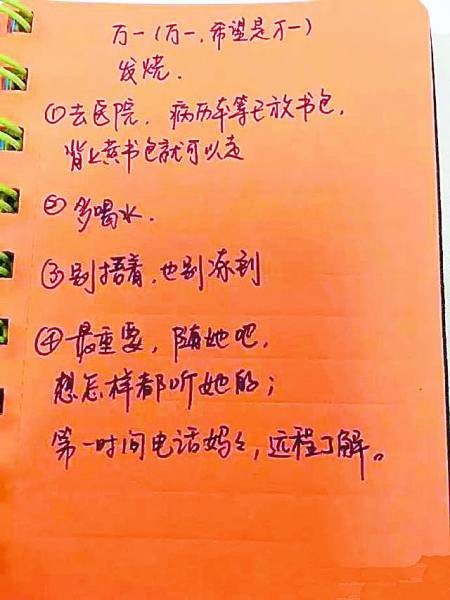 万一(万一,希望是万一)
发烧.
①去医院,病历本等已放书包,
背上黄书包就可以走
②多喝水.
③别捂着,也别冻到
④最重要,随她吧,
想怎样都听她的;
第一时间电话妈々,远程了解。